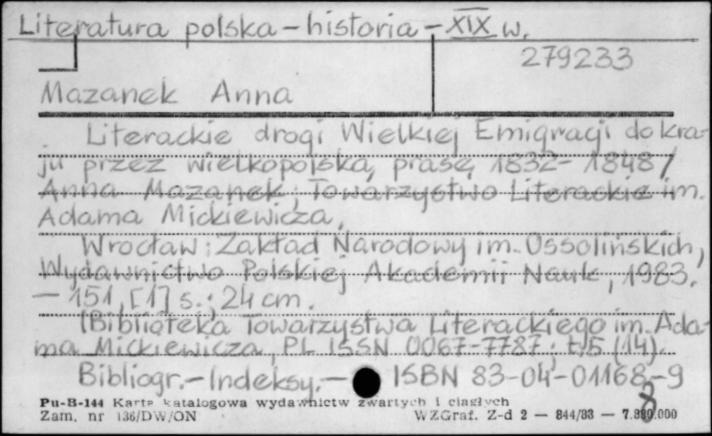 Literatura polska – historia – XIX w.
279233
Mazanek Anna
Literackie drogi Wielkiej Emigracji do kra-
ju przez wielkopolską prasę 1832–1848 /
Anna Mazanek ; Towarzystwo Literackie im.
Adama Mickiewicza.
Wrocław : Zakład Narodowy im. Ossolińskich,
Wydawnictwo Polskiej Akademii Nauk, 1983.
– 151, [1] s. ; 24 cm.
(Biblioteka Towarzystwa Literackiego im. Ada-
ma Mickiewicza, PL ISSN 0067-7787 ; t. 15 (14).
Bibliogr. – Indeksy. – ISBN 83-04-01168-9
8
Pu-B-144 Karta katalogowa wydawnictw zwartych i ciągłych
Zam. nr 136/DW/ON WZGraf. Z-d 2 — 844/83 — 7.800.000